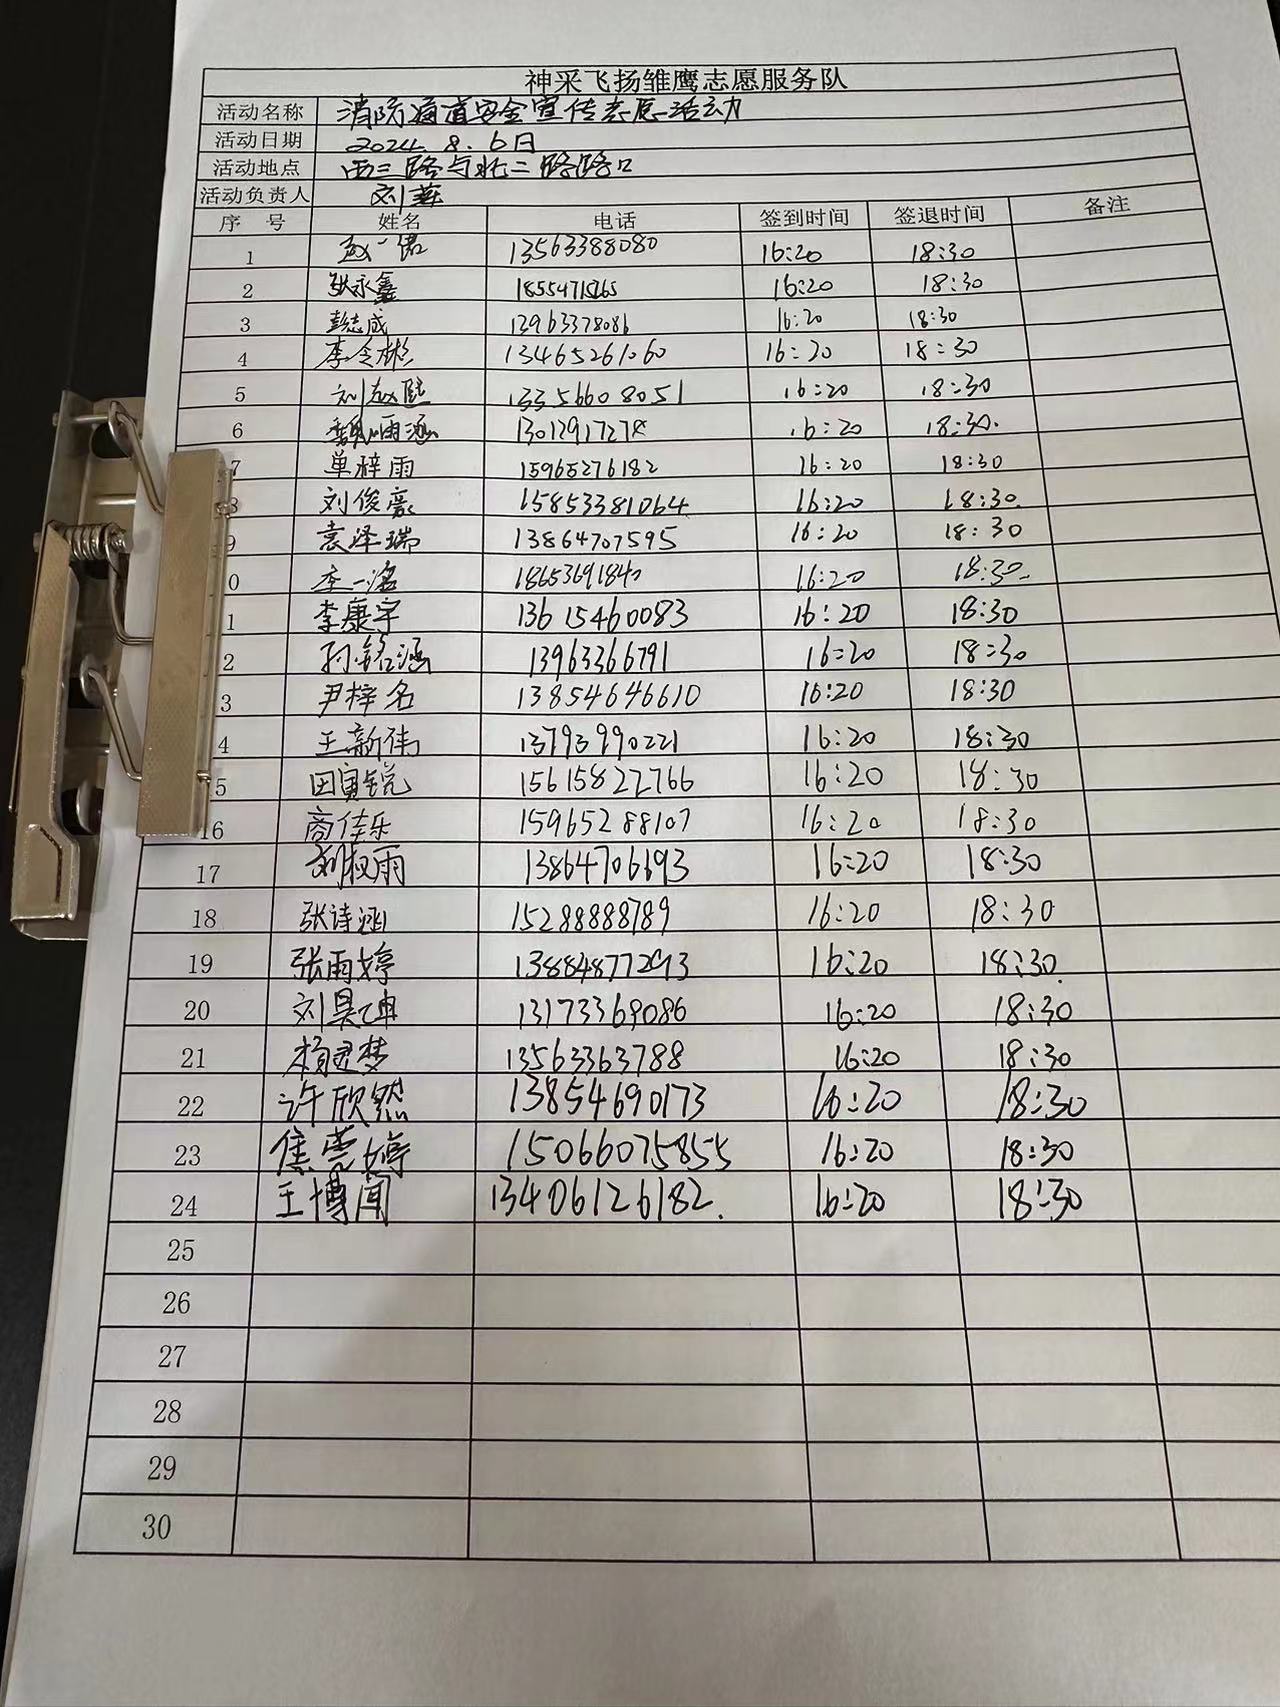 神采飞扬雏鹰志愿服务队
活动名称 消防通道安全宣传志愿活动
活动日期 2024.8.6日
活动地点 西三路与北二路路口
活动负责人 刘
序 号 姓名 电话 签到时间 签退时间 备注
1 赵一诺 13563388080 16:20 18:30
2 张永鑫 16:20 18:30
3 彭志成 13963378086 16:20 18:30
4 李令彬 13465261060 16:20 18:30
5 刘赵陆 13356608051 16:20 18:30
6 魏雨涵 16:20 18:30.
7 单梓雨 15965276182 16:20 18:30
8 刘俊豪 15853381064 16:20 18:30.
9 袁泽瑞 13864707595 16:20 18:30
0 李一诺 18653691840 16:20 18:30
1 李康宇 13615460083 16:20 18:30
2 孙铭涵 13963366791 16:20 18:30
3 尹梓名 13854646610 16:20 18:30
4 王新伟 13793990221 16:20 18:30
5 田寅锐 15615822766 16:20 18:30
16 商佳乐 15965288107 16:20 18:30
17 刘权雨 13864706193 16:20 18:30
18 张诗涵 15288888789 16:20 18:30
19 张雨婷 13884877293 16:20 18:30
20 刘昊坤 13173369086 16:20 18:30
21 杨灵梦 13563363788 16:20 18:30
22 许欣然 13854690173 16:20 18:30
23 焦莞婷 15066075855 16:20 18:30
24 王博闻 13406126182. 16:20 18:30
25
26
27
28
29
30